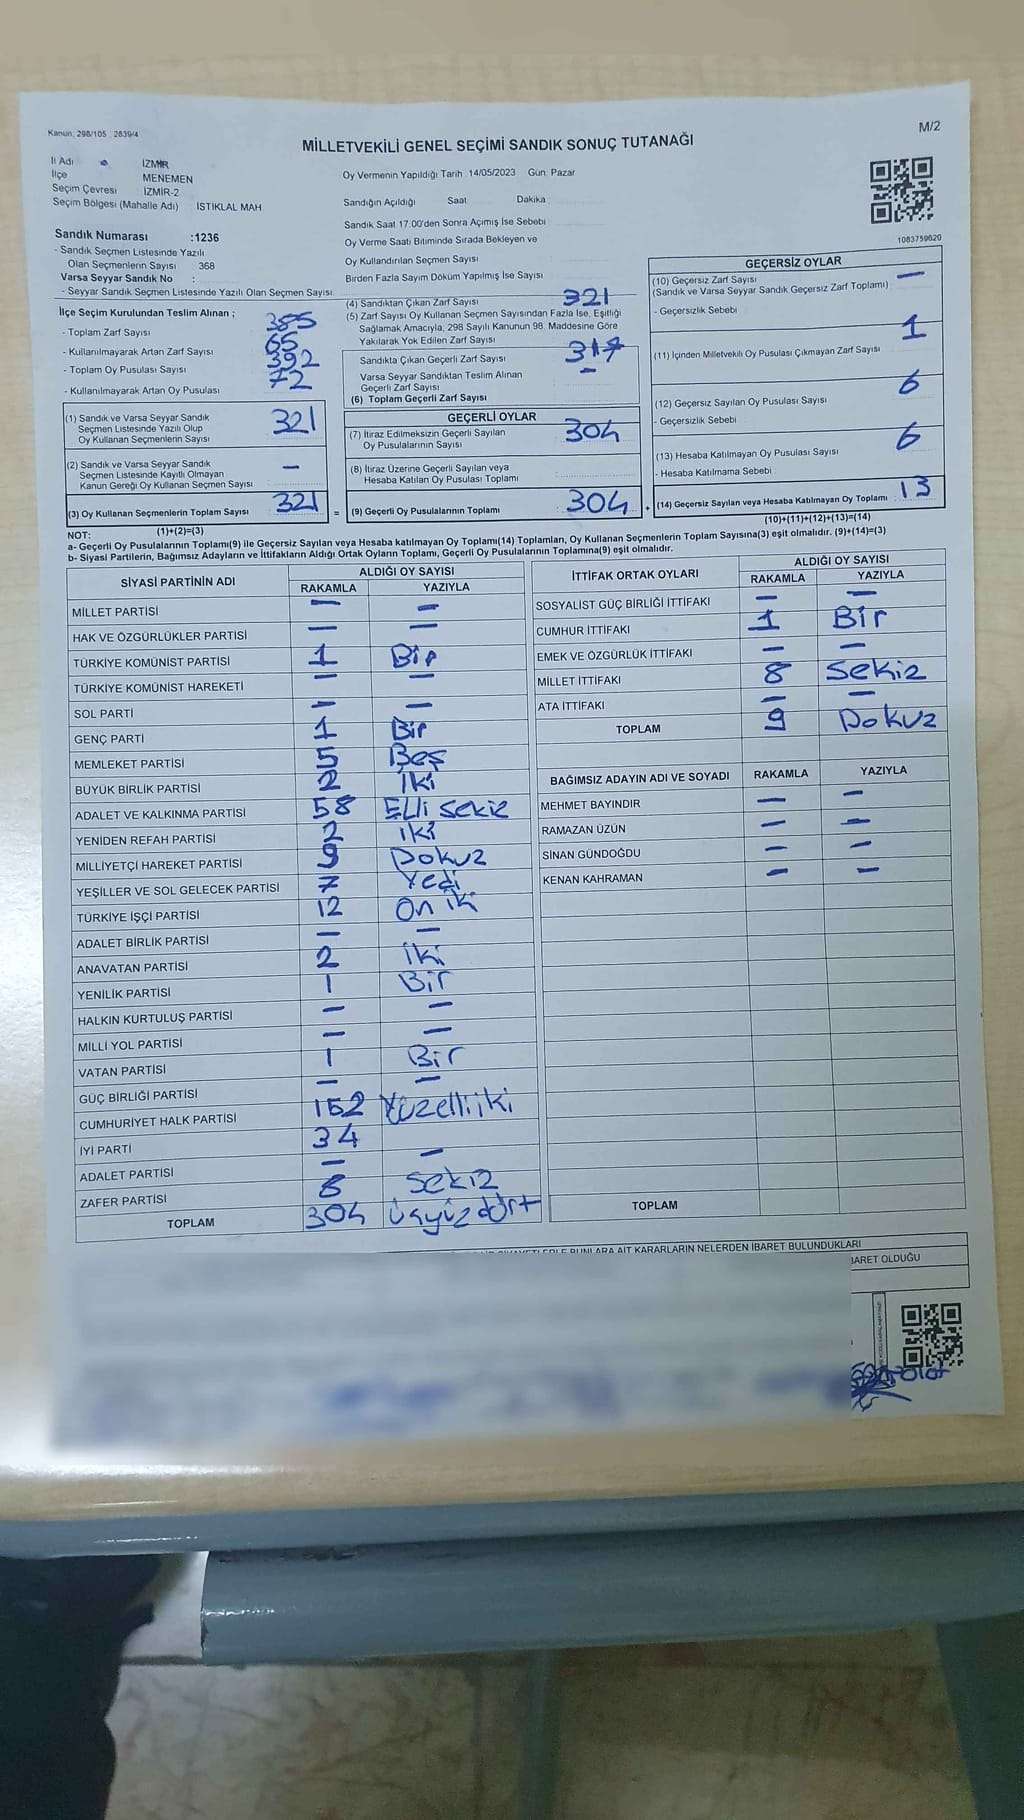 Kanun: 298/105 , 2839/4
M/2
MİLLETVEKİLİ GENEL SEÇİMİ SANDIK SONUÇ TUTANAĞI
İl Adı İZMİR
İlçe MENEMEN
Seçim Çevresi İZMİR-2
Seçim Bölgesi (Mahalle Adı) İSTİKLAL MAH
Sandık Numarası :1236
- Sandık Seçmen Listesinde Yazılı
Olan Seçmenlerin Sayısı : 368
Varsa Seyyar Sandık No :
- Seyyar Sandık Seçmen Listesinde Yazılı Olan Seçmen Sayısı:
Oy Vermenin Yapıldığı Tarih :14/05/2023 Gün: Pazar
Sandığın Açıldığı Saat Dakika
Sandık Saat 17:00'den Sonra Açımış İse Sebebi :
Oy Verme Saati Bitiminde Sırada Bekleyen ve
Oy Kullandırılan Seçmen Sayısı
Birden Fazla Sayım Döküm Yapılmış İse Sayısı
1083759620
İlçe Seçim Kurulundan Teslim Alınan ;
- Toplam Zarf Sayısı 385
- Kullanılmayarak Artan Zarf Sayısı 65
- Toplam Oy Pusulası Sayısı 392
- Kullanılmayarak Artan Oy Pusulası 72
(1) Sandık ve Varsa Seyyar Sandık
Seçmen Listesinde Yazılı Olup
Oy Kullanan Seçmenlerin Sayısı 321
(2) Sandık ve Varsa Seyyar Sandık
Seçmen Listesinde Kayıtlı Olmayan
Kanun Gereği Oy Kullanan Seçmen Sayısı : —
(3) Oy Kullanan Seçmenlerin Toplam Sayısı 321
(1)+(2)=(3)
(4) Sandıktan Çıkan Zarf Sayısı 321
(5) Zarf Sayısı Oy Kullanan Seçmen Sayısından Fazla İse, Eşitliği
Sağlamak Amacıyla, 298 Sayılı Kanunun 98. Maddesine Göre
Yakılarak Yok Edilen Zarf Sayısı
Sandıkta Çıkan Geçerli Zarf Sayısı 317
Varsa Seyyar Sandıktan Teslim Alınan
Geçerli Zarf Sayısı —
(6) Toplam Geçerli Zarf Sayısı
GEÇERLİ OYLAR
(7) İtiraz Edilmeksizin Geçerli Sayılan
Oy Pusulalarının Sayısı 304
(8) İtiraz Üzerine Geçerli Sayılan veya
Hesaba Katılan Oy Pusulası Toplamı
= (9) Geçerli Oy Pusulalarının Toplamı 304 +
GEÇERSİZ OYLAR
(10) Geçersiz Zarf Sayısı —
(Sandık ve Varsa Seyyar Sandık Geçersiz Zarf Toplamı) :
- Geçersizlik Sebebi :
(11) İçinden Milletvekili Oy Pusulası Çıkmayan Zarf Sayısı 1
(12) Geçersiz Sayılan Oy Pusulası Sayısı 6
- Geçersizlik Sebebi :
(13) Hesaba Katılmayan Oy Pusulası Sayısı 6
- Hesaba Katılmama Sebebi :
(14) Geçersiz Sayılan veya Hesaba Katılmayan Oy Toplamı : 13
(10)+(11)+(12)+(13)=(14)
NOT:
a- Geçerli Oy Pusulalarının Toplamı(9) ile Geçersiz Sayılan veya Hesaba katılmayan Oy Toplamı(14) Toplamları, Oy Kullanan Seçmenlerin Toplam Sayısına(3) eşit olmalıdır. (9)+(14)=(3)
b- Siyasi Partilerin, Bağımsız Adayların ve İttifakların Aldığı Ortak Oyların Toplamı, Geçerli Oy Pusulalarının Toplamına(9) eşit olmalıdır.
SİYASİ PARTİNİN ADI ALDIĞI OY SAYISI
RAKAMLA YAZIYLA
MİLLET PARTİSİ — —
HAK VE ÖZGÜRLÜKLER PARTİSİ — —
TÜRKİYE KOMÜNİST PARTİSİ 1 Bir
TÜRKİYE KOMÜNİST HAREKETİ — —
SOL PARTİ — —
GENÇ PARTİ 1 Bir
MEMLEKET PARTİSİ 5 Beş
BÜYÜK BİRLİK PARTİSİ 2 İki
ADALET VE KALKINMA PARTİSİ 58 Elli sekiz
YENİDEN REFAH PARTİSİ 2 iki
MİLLİYETÇİ HAREKET PARTİSİ 9 Dokuz
YEŞİLLER VE SOL GELECEK PARTİSİ 7 Yedi
TÜRKİYE İŞÇİ PARTİSİ 12 On iki
ADALET BİRLİK PARTİSİ — —
ANAVATAN PARTİSİ 2 iki
YENİLİK PARTİSİ 1 Bir
HALKIN KURTULUŞ PARTİSİ — —
MİLLİ YOL PARTİSİ — —
VATAN PARTİSİ 1 Bir
GÜÇ BİRLİĞİ PARTİSİ — —
CUMHURİYET HALK PARTİSİ 152 Yüzelliiki
İYİ PARTİ 34
ADALET PARTİSİ — —
ZAFER PARTİSİ 8 Sekiz
TOPLAM 304 üçyüzdört
İTTİFAK ORTAK OYLARI ALDIĞI OY SAYISI
RAKAMLA YAZIYLA
SOSYALİST GÜÇ BİRLİĞİ İTTİFAKI — —
CUMHUR İTTİFAKI 1 Bir
EMEK VE ÖZGÜRLÜK İTTİFAKI — —
MİLLET İTTİFAKI 8 Sekiz
ATA İTTİFAKI — —
TOPLAM 9 Dokuz
BAĞIMSIZ ADAYIN ADI VE SOYADI RAKAMLA YAZIYLA
MEHMET BAYINDIR — —
RAMAZAN ÜZÜN — —
SİNAN GÜNDOĞDU — —
KENAN KAHRAMAN — —
TOPLAM
BUNLARA AİT KARARLARIN NELERDEN İBARET BULUNDUKLARI
İBARET OLDUĞU